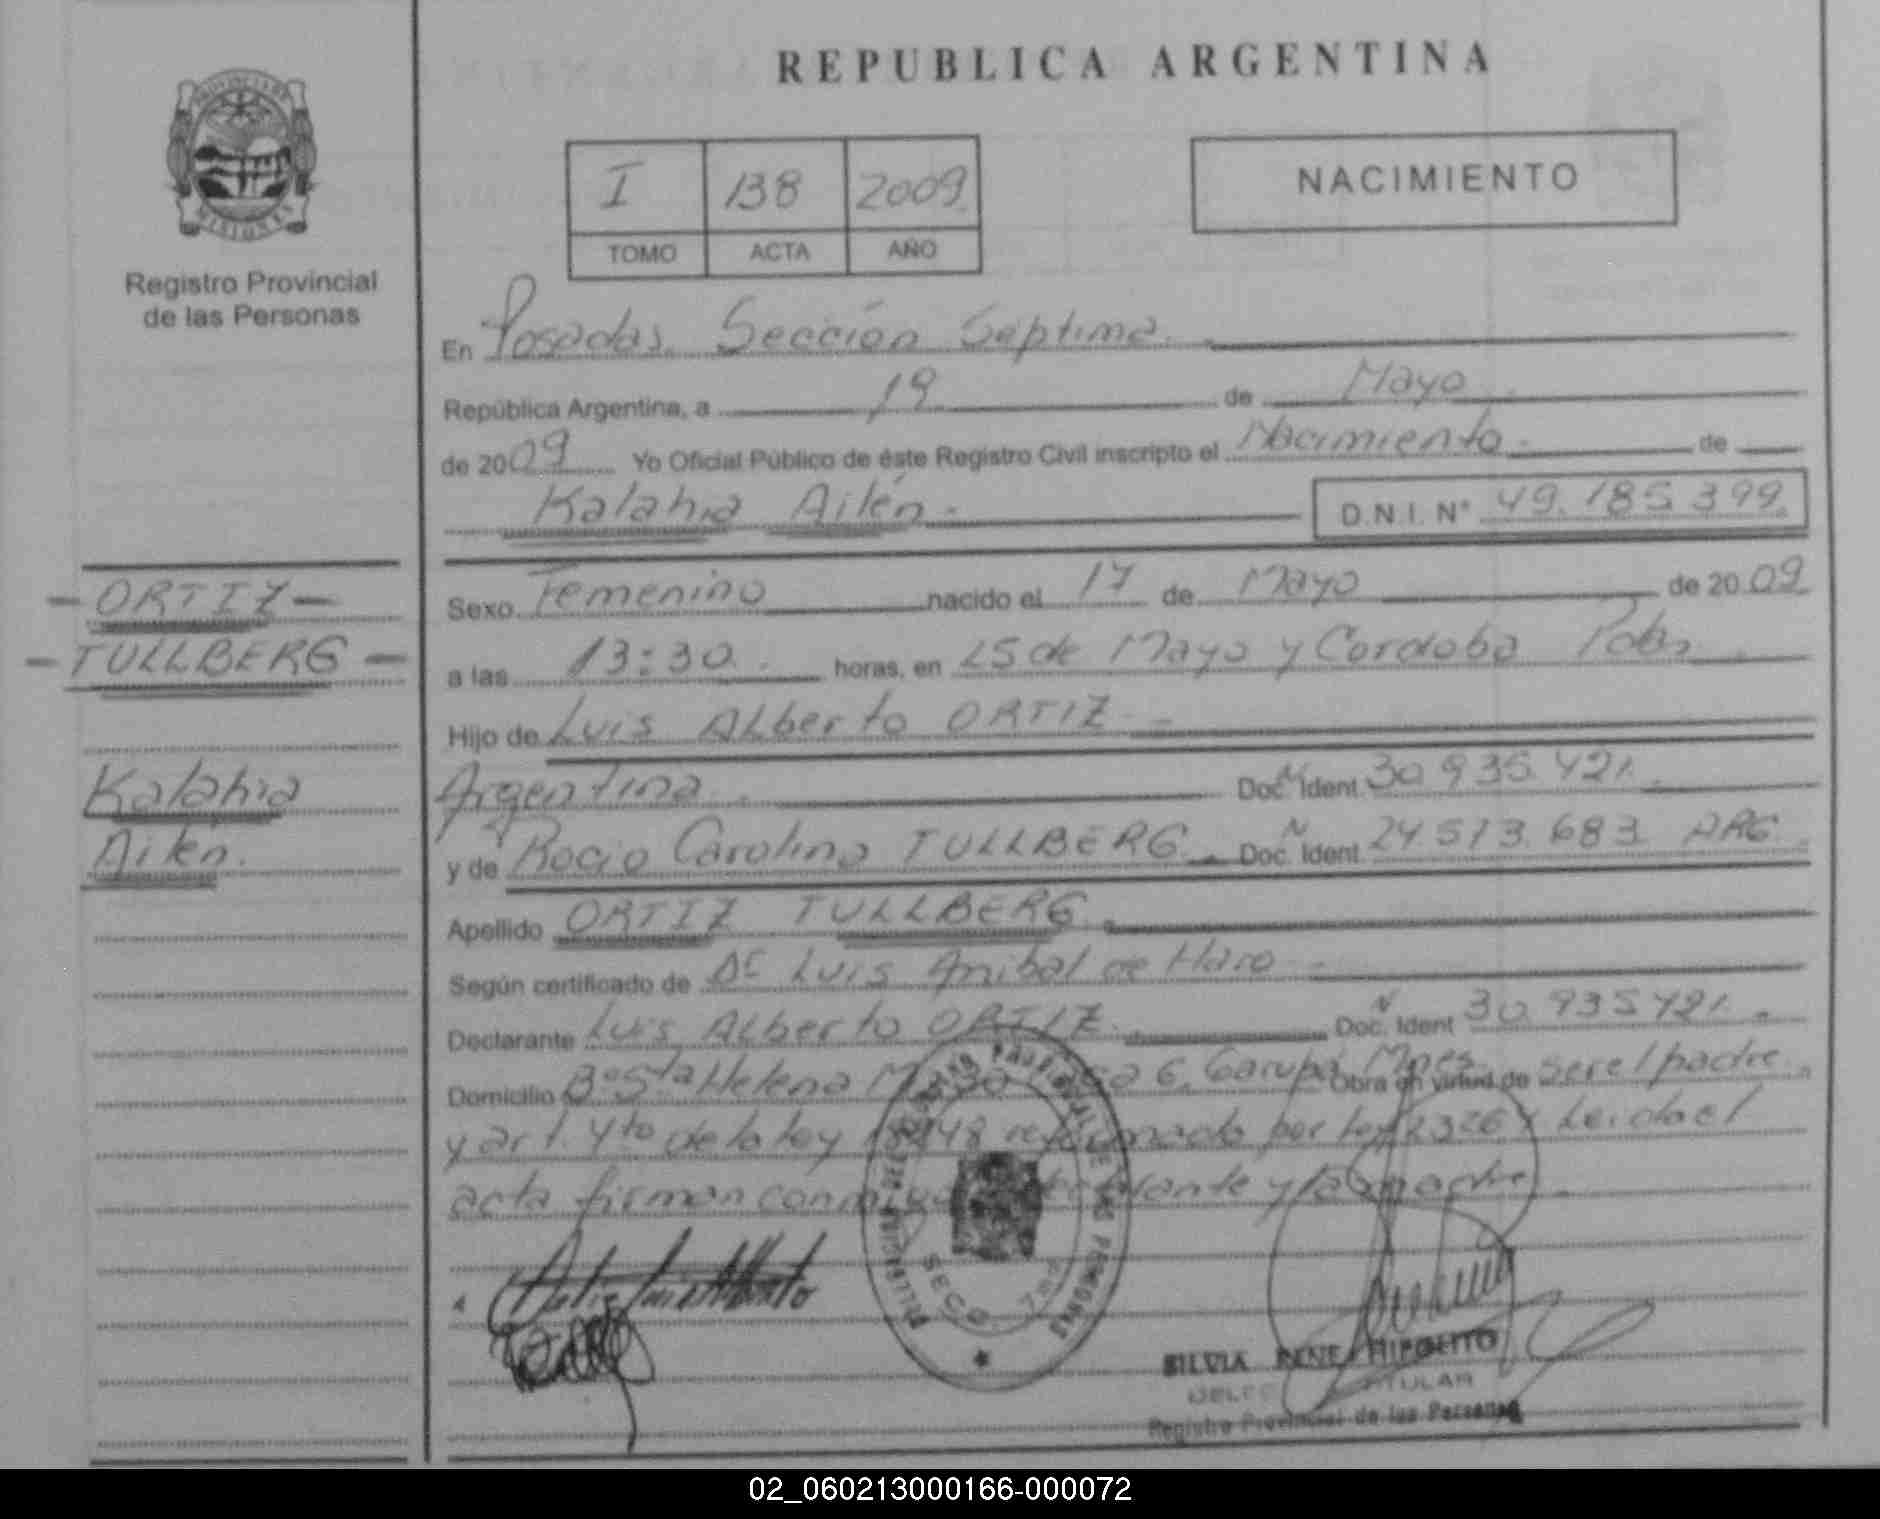 REPUBLICA ARGENTINA
PROVINCIA DE MISIONES
Registro Provincial
de las Personas
I 138 2009
TOMO ACTA AÑO
NACIMIENTO
En Posadas. Sección Septima.
República Argentina, a 19 de Mayo
de 2009 Yo Oficial Público de éste Registro Civil inscripto el Nacimiento de
Kalahia Ailén. D.N.I. N° 49.185.399.
- ORTIZ -
- TULLBERG -
Kalahia
Ailén.
Sexo Femenino nacido el 17 de Mayo de 2009
a las 13:30 horas, en 25 de Mayo y Cordoba Pdas
Hijo de Luis ALberto ORTIZ
Argentina. Doc. Ident. N 30.935.421.
y de Rocio Carolina TULLBERG Doc. Ident. N 24.513.683 ARG.
Apellido ORTIZ TULLBERG
Según certificado de Dr Luis Anibal de Haro
Declarante Luis ALberto ORTIZ. Doc. Ident N 30.935421.
Domicilio B° Sta Helena 6. Garupá Mnes. Obra en virtud de ser el padre
y art. 4to de la ley reformado por ley Leida el
acta firman conmigo declarante y la madre
Ortiz Luis Alberto
REGISTRO PROVINCIAL DE LAS PERSONAS
SECC.
SILVIA RENE HIPOLITO
TITULAR
Registro Provincial de las Personas
02_060213000166-000072